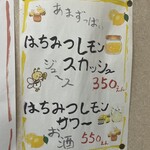 あまずっぱ〜い
はちみつレモン
スカッシュ
ジュース
350えん
はちみつレモン
サワー
お酒
550えん